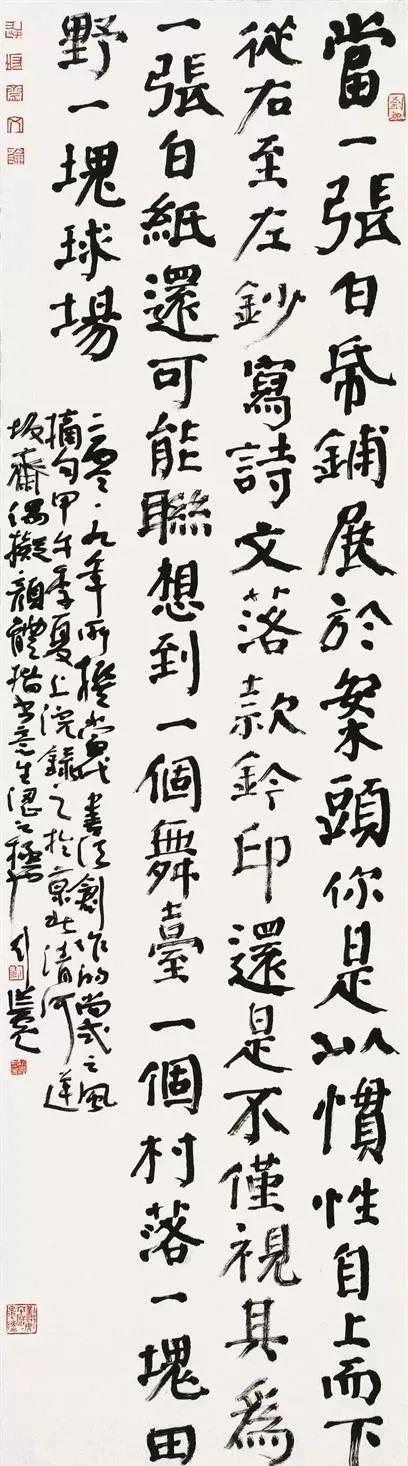 當一張白帋鋪展於案頭你是以慣性自上而下
從右至左鈔寫詩文落款鈐印還是不僅視其爲
一張白紙還可能聯想到一個舞臺一個村落一塊田
野一塊球場
二零〇九年所撰當代書法創作的尚式之風
摘句甲午季夏上浣錄之於京北清河
齋偶擬顏體楷書意生澀之極也